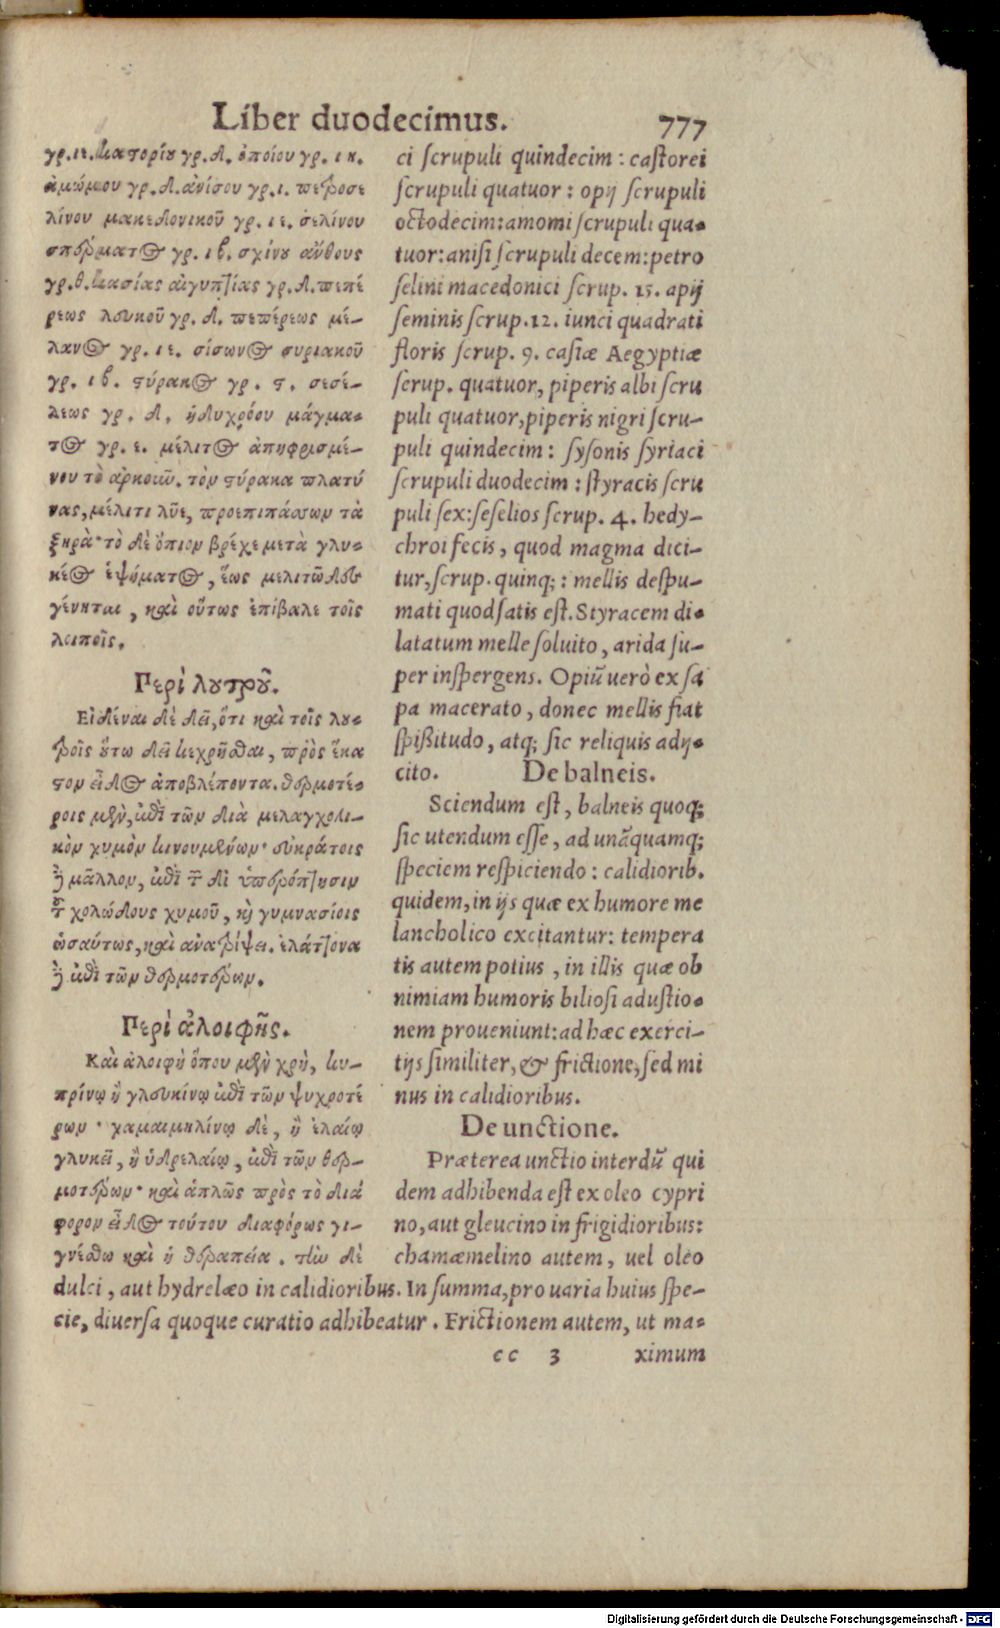 Liber duodecimus. 777
γρ. ιε. καστορίου γρ. δ. ὀπίου γρ. ιη.
ἀμώμου γρ. δ. ἀνίσου γρ. ι. πετροσε
λίνου μακεδονικοῦ γρ. ιε. σελίνου
σπέρματος γρ. ιβ. σχίνου ἄνθους
γρ. θ. κασίας αἰγυπτίας γρ. δ. πεπέ
ρεως λευκοῦ γρ. δ. πεπέρεως μέ-
λανος γρ. ιε. σίσωνος συριακοῦ
γρ. ιβ. στύρακος γρ. ϛ. σεσέ-
λεως γρ. δ. ἡδυχρόου μάγμα-
τος γρ. ε. μέλιτος ἀπηφρισμέ-
νου τὸ ἀρκοῦν. τὸν στύρακα πλατύ
νας, μέλιτι λῦε, προεπιπάσσων τὰ
ξηρὰ· τὸ δὲ ὄπιον βρέχε μετὰ γλυ-
κέος ἑψήματος, ἕως μελιτῶδες
γένηται, καὶ οὕτως ἐπίβαλε τοῖς
λοιποῖς.
Περὶ λουτροῦ.
Εἰδέναι δὲ δεῖ, ὅτι καὶ τοῖς λου-
τροῖς οὕτω δεῖ κεχρῆσθαι, πρὸς ἕκα
στον εἶδος ἀποβλέποντα. θερμοτέ-
ροις μὲν, ἐπὶ τῶν διὰ μελαγχολι-
κὸν χυμὸν κινουμένων· εὐκράτοις
ἢ μᾶλλον, ἐπὶ τῶν δι' ὑπερόπτησιν
τοῦ χολώδους χυμοῦ, καὶ γυμνασίοις
ὡσαύτως, καὶ ἀνατρίψει. ἐλάττονα
ἢ ἐπὶ τῶν θερμοτέρων.
Περὶ ἀλοιφῆς.
Καὶ ἀλοιφῇ ὅπου μὲν χρὴ, κυ-
πρίνῳ ἢ γλευκίνῳ ἐπὶ τῶν ψυχροτέ
ρων· χαμαιμηλίνῳ δὲ, ἢ ἐλαίῳ
γλυκεῖ, ἢ ὑδρελαίῳ, ἐπὶ τῶν θερ-
μοτέρων· καὶ ἁπλῶς πρὸς τὸ διά
φορον εἶδος τούτου διαφόρως γι-
γνέσθω καὶ ἡ θεραπεία. τὴν δὲ
ci scrupuli quindecim: castorei
scrupuli quatuor: opij scrupuli
octodecim: amomi scrupuli qua-
tuor: anisi scrupuli decem: petro
selini macedonici scrup. 15. apij
seminis scrup. 12. iunci quadrati
floris scrup. 9. casiæ Aegyptiæ
scrup. quatuor, piperis albi scru
puli quatuor, piperis nigri scru-
puli quindecim: sysonis syriaci
scrupuli duodecim: styracis scru
puli sex: seselios scrup. 4. hedy-
chroi fecis, quod magma dici-
tur, scrup. quinq;: mellis despu-
mati quod satis est. Styracem di-
latatum melle soluito, arida su-
per inspergens. Opiũ uerò ex sa
pa macerato, donec mellis fiat
spißitudo, atq; sic reliquis adij-
cito. De balneis.
Sciendum est, balneis quoq;
sic utendum esse, ad unãquamq;
speciem respiciendo: calidiorib.
quidem, in ijs quæ ex humore me
lancholico excitantur: tempera
tis autem potius, in illis quæ ob
nimiam humoris biliosi adustio-
nem proueniunt: ad hæc exerci-
tijs similiter, & frictione, sed mi
nus in calidioribus.
De unctione.
Præterea unctio interdũ qui
dem adhibenda est ex oleo cypri
no, aut gleucino in frigidioribus:
chamæmelino autem, uel oleo
dulci, aut hydrelæo in calidioribus. In summa, pro uaria huius spe-
cie, diuersa quoque curatio adhibeatur. Frictionem autem, ut ma-
cc 3 ximum
Digitalisierung gefördert durch die Deutsche Forschungsgemeinschaft - DFG